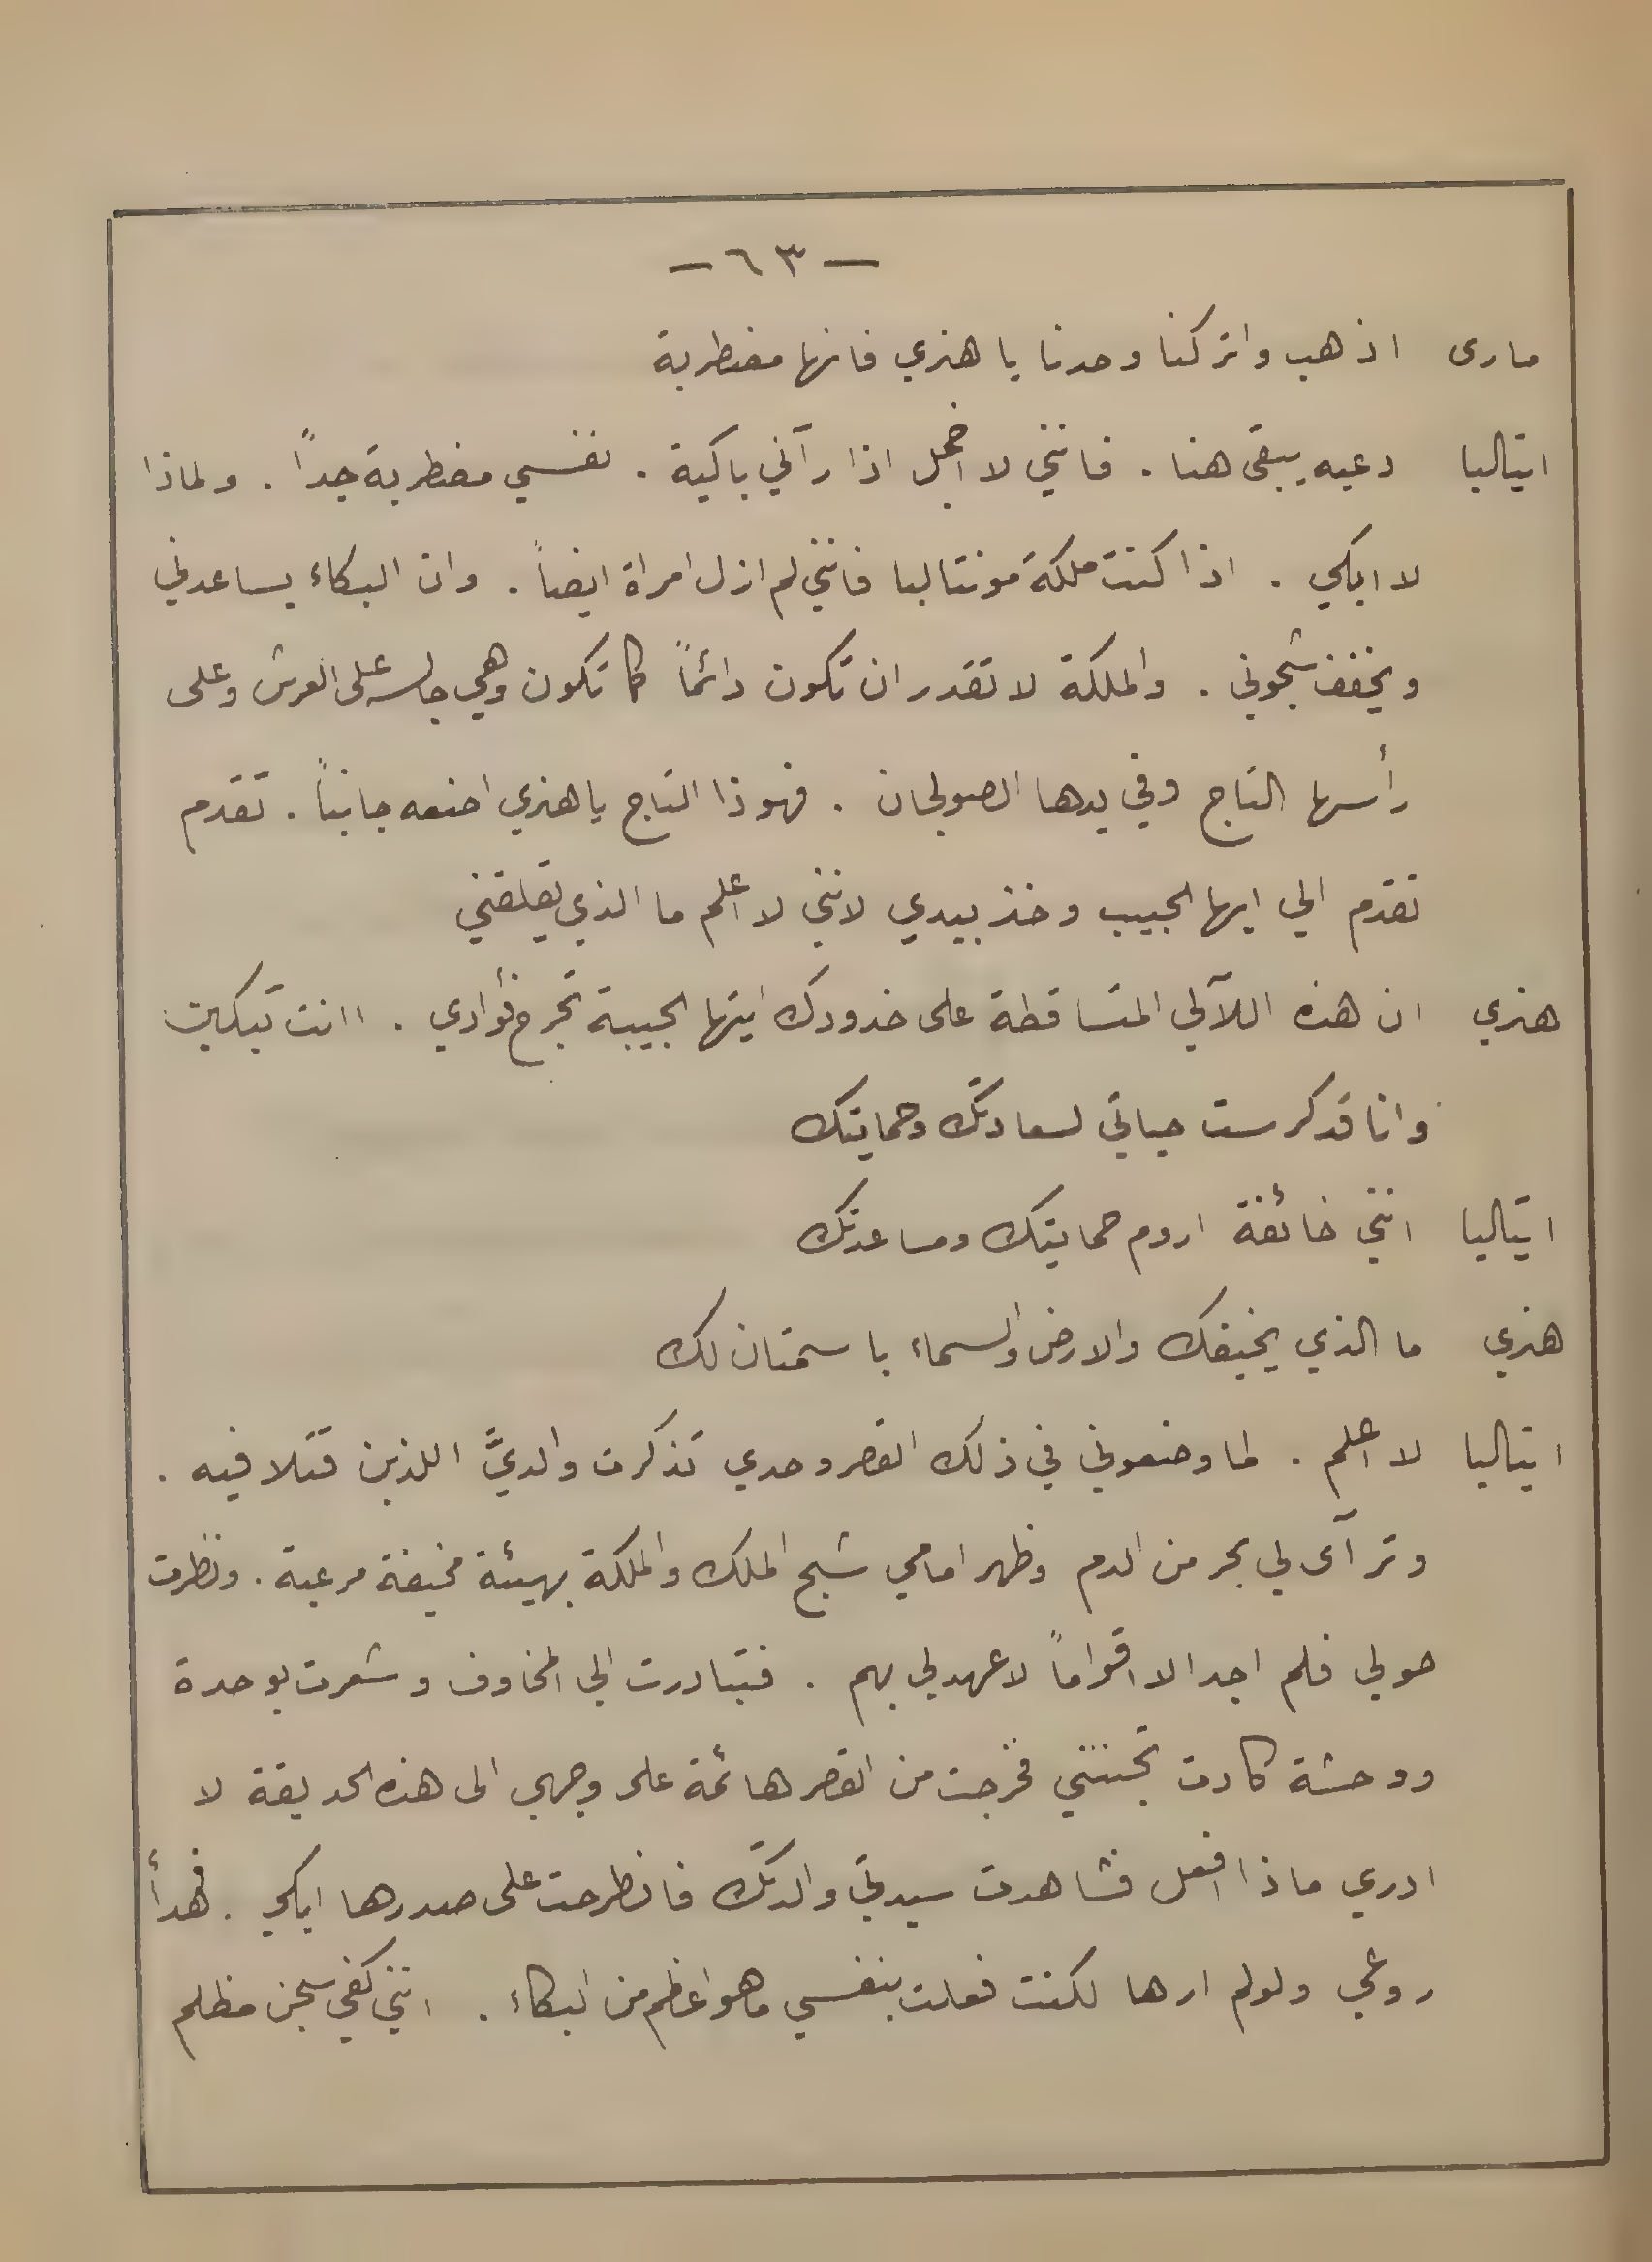 — ٦٣ —
مارى اذهب واتركنا وحدنا يا هنري فانها مضطربة
ايتاليا دعيه يبقى هنا . فانني لا اخجل اذا رآني باكية . نفسي مضطربة جداً . ولماذا
لا ابكي . اذا كنت ملكة مونتاليا فانني لم ازل امراة ايضاً . وان البكاء يساعدني
ويخفف شجوني . والملكة لا تقدر ان تكون دائماً كما تكون وهي جالسه على العرش وعلى
رأسها التاج وفي يدها الصولجان . فهوذا التاج يا هنري اضعه جانباً . تقدم
تقدم الي ايها الحبيب وخذ بيدي لانني لا اعلم ما الذي يقلقني
هنري ان هذه اللآلي المتساقطة على خدودك ايتها الحبيبة تجرح فؤادي . اانت تبكين
وانا قد كرست حياتي لسعادتك وحمايتك
ايتاليا انني خائفة اروم حمايتك ومساعدتك
هنري ما الذي يخيفك والارض والسماء باسمتان لك
ايتاليا لا اعلم . لما وضعوني في ذلك القصر وحدي تذكرت والديَّ اللذين قتلا فيه .
وترآى لي بحر من الدم وظهر امامي شبح الملك والملكة بهيئة مخيفة مرعبة . ونظرت
حولي فلم اجد الا اقواماً لا عهد لي بهم . فتبادرت الي المخاوف وشعرت بوحدة
ووحشة كادت تجننني فخرجت من القصر هائمة على وجهي الى هذه الحديقة لا
ادري ماذا افعل فشاهدت سيدتي والدتك فانطرحت على صدرها ابكي . فهدأ
روعي ولولم ارها لكنت فعلت بنفسي ما هو اعظم من البكاء . انني كفي سجن مظلم